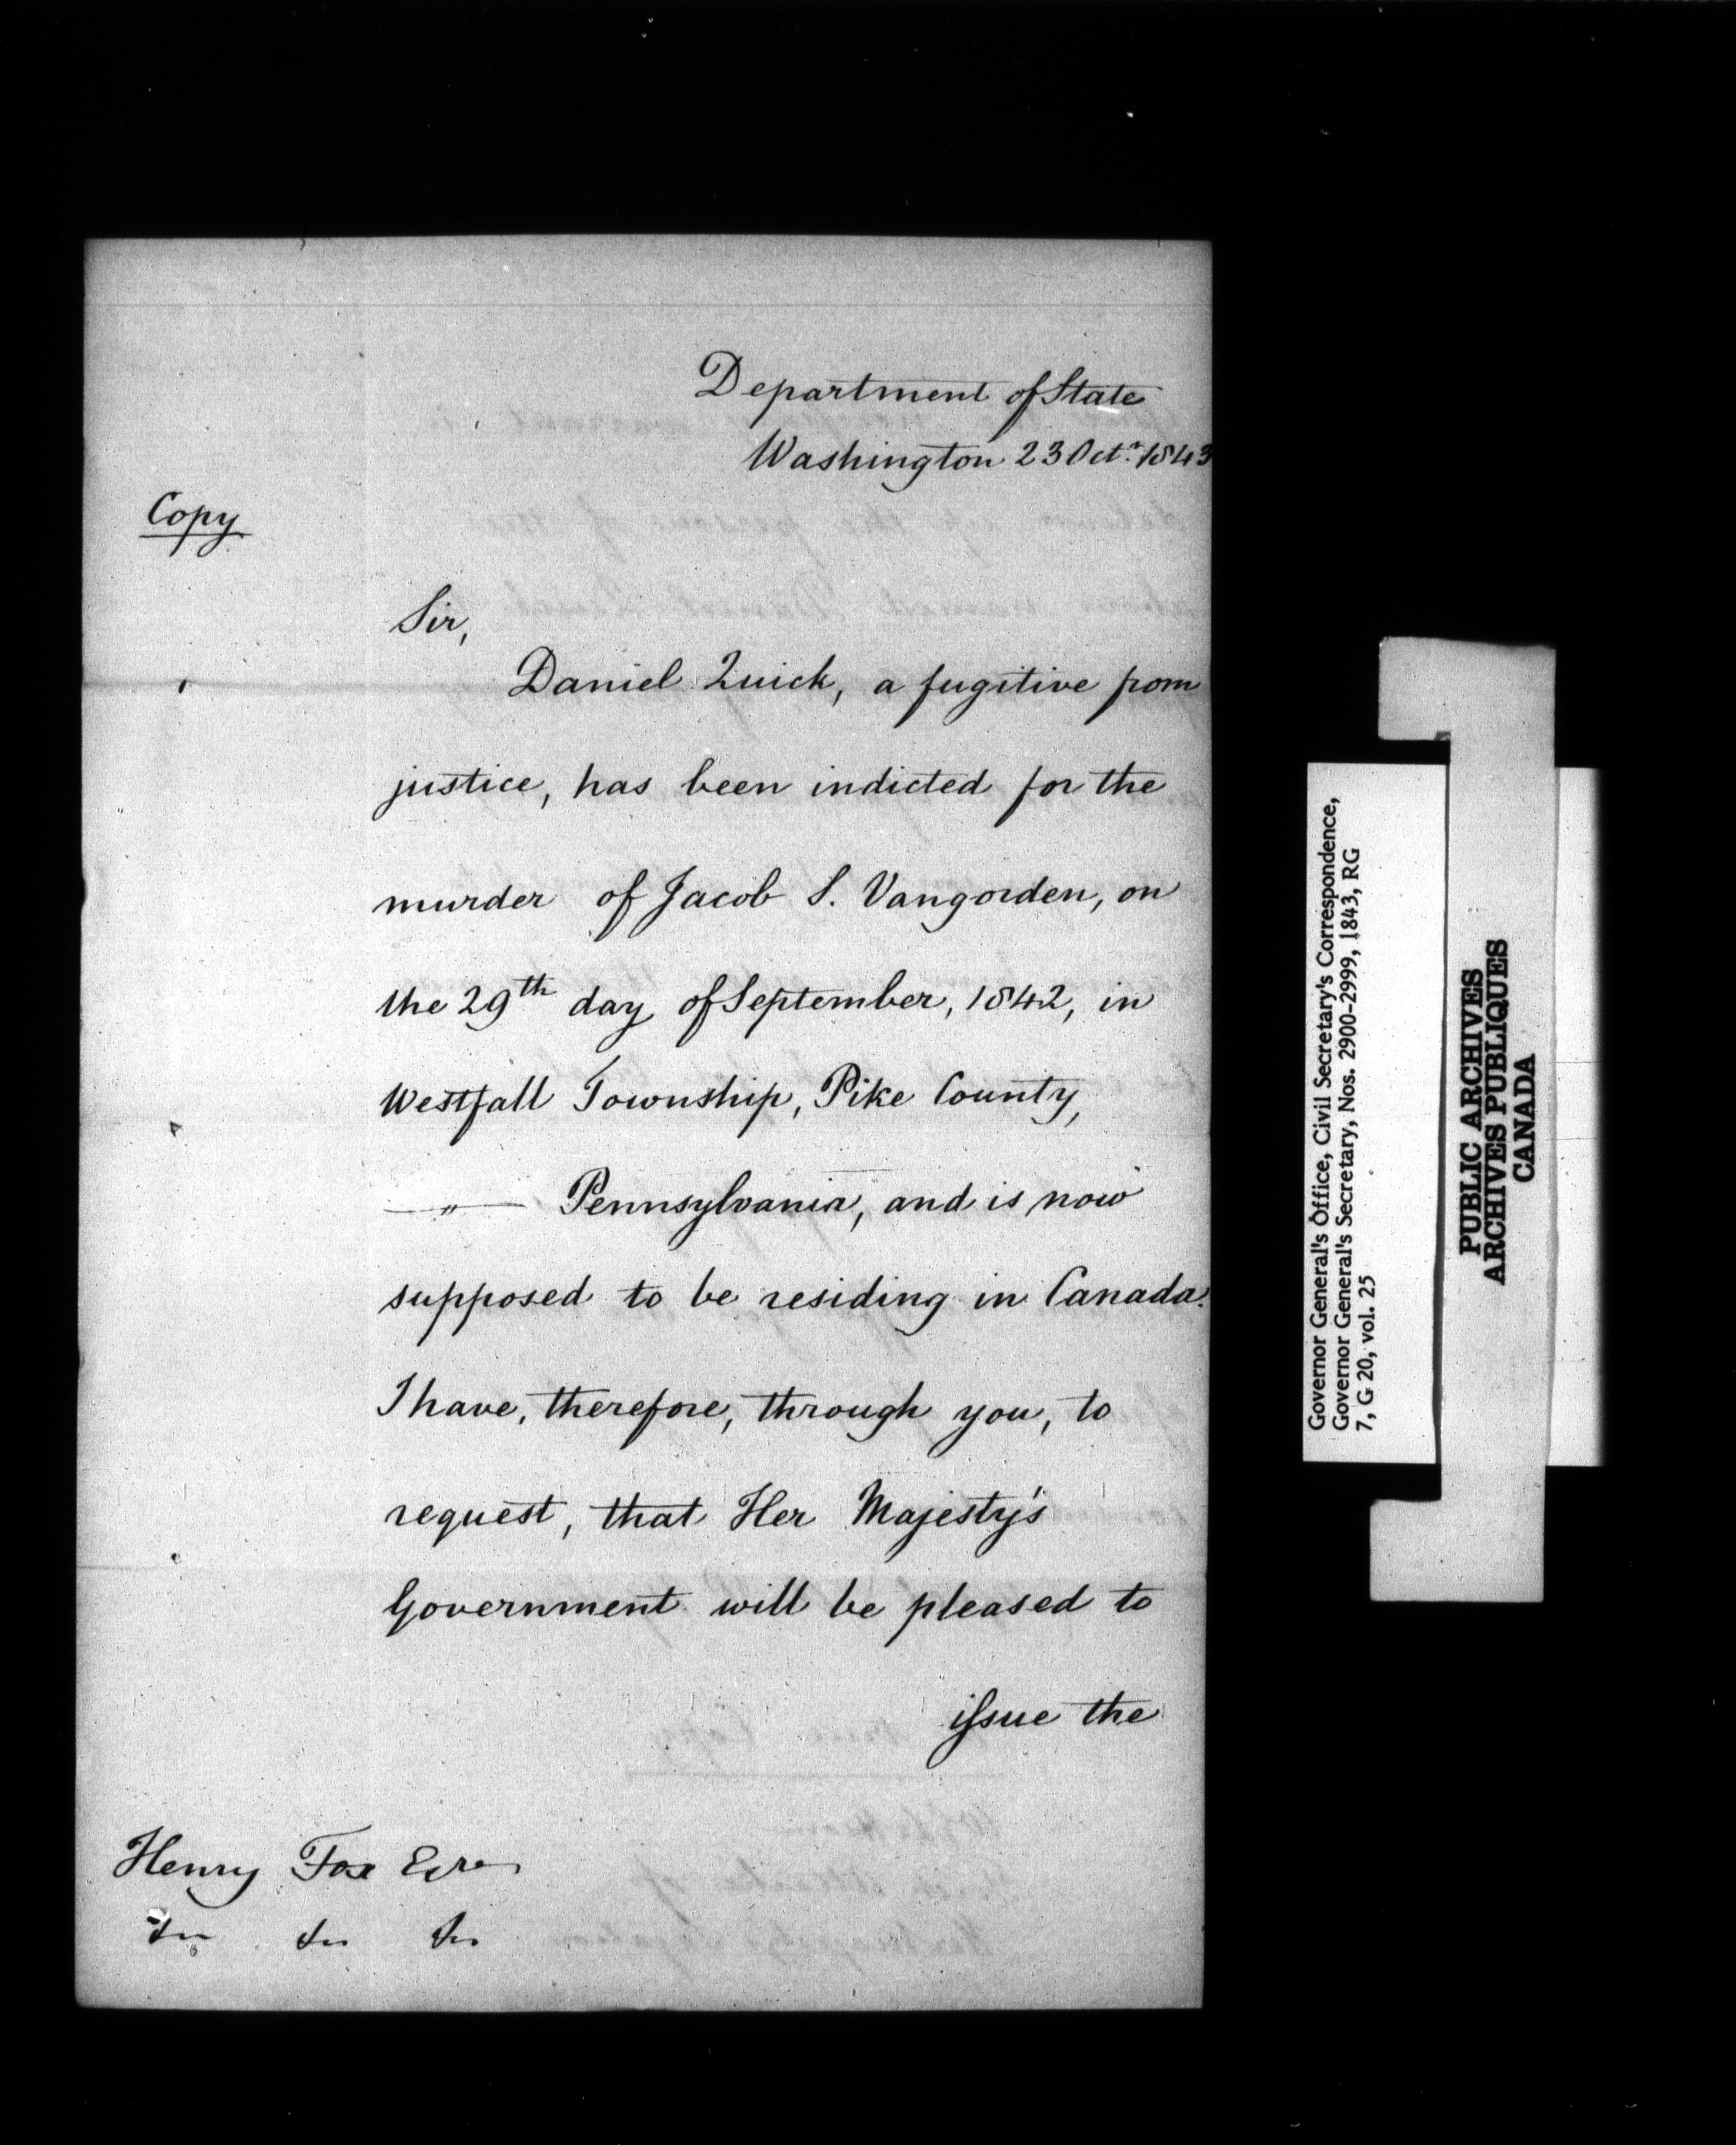 Department of State
Washington 23 Octr. 1843
Copy
Sir,
Daniel Quick, a fugitive from
justice, has been indicted for the
murder of Jacob S. Vangorden, on
the 29th day of September, 1842, in
Westfall Township, Pike County,
—〃— Pennsylvania, and is now
supposed to be residing in Canada.
I have, therefore, through you, to
request, that Her Majesty's
Government will be pleased to
issue the
Henry Fox Esqre
&c &c &c
Governor General's Office, Civil Secretary's Correspondence,
Governor General's Secretary, Nos. 2900-2999, 1843, RG
7, G 20, vol. 25
PUBLIC ARCHIVES
ARCHIVES PUBLIQUES
CANADA